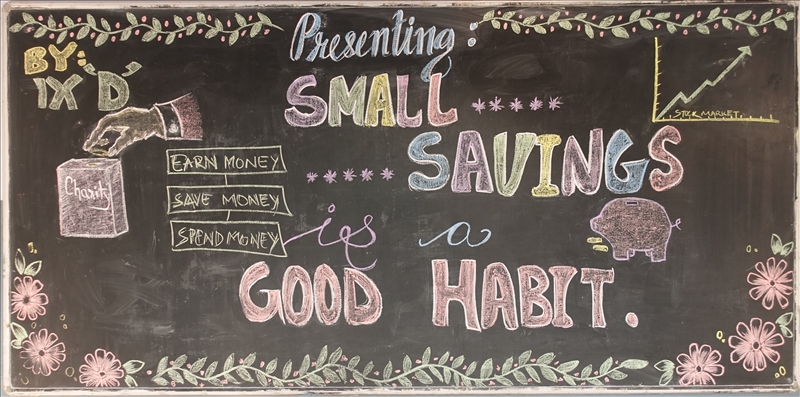 Presenting:
BY:
IX 'D'
SMALL *****
STOCK MARKET
***** SAVINGS
EARN MONEY
Charity
SAVE MONEY
SPEND MONEY
is a
GOOD HABIT.